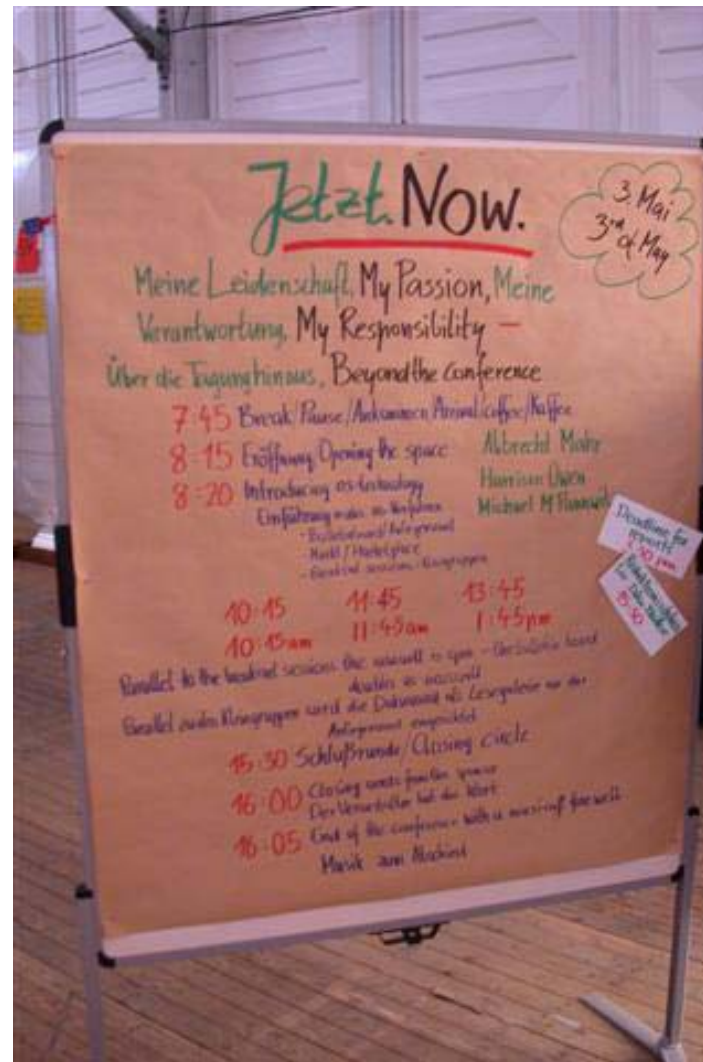 Jetzt. Now.
3. Mai
3rd of May
Meine Leidenschaft, My Passion, Meine
Verantwortung, My Responsibility –
Über die Tagung hinaus, Beyond the conference
7:45 Break/Pause/Ankommen Arrival/coffee/Kaffee
8:15 Eröffnung/Opening the space Albrecht Mahr
8:20 Introducing os-technology Harrison Owen
Einführung os-Verfahren Michael M
Markt/Marketplace
10:15 11:45 13:45
10:15am 11:45am 1:45pm
Deadline for
reports
15:30
Parallel to the breakout sessions the newswall is open – the bulletin board
doubles as newswall
Parallel zu den Kleingruppen wird die Dokuwand als Lesegalerie an der
eingerichtet
15:30 Schlußrunde/Closing circle
16:00 Closing words from the sponsor
Der Veranstalter hat das Wort
16:05 End of the conference with a musical farewell
Musik zum Abschied